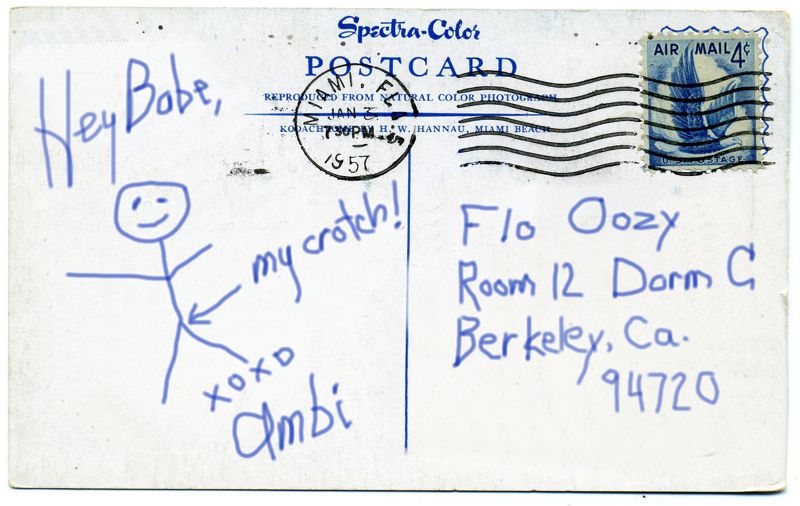 Spectra-Color
POSTCARD
REPRODUCED FROM NATURAL COLOR PHOTOGRAPH
KODACHROME H. W. HANNAU, MIAMI BEACH
MIAMI, FLA.
JAN 3
7 30 PM
1957
AIR MAIL 4¢
U.S. POSTAGE
Hey Babe,
my crotch!
XOXO
Ambi
Flo Oozy
Room 12 Dorm C
Berkeley, Ca.
94720